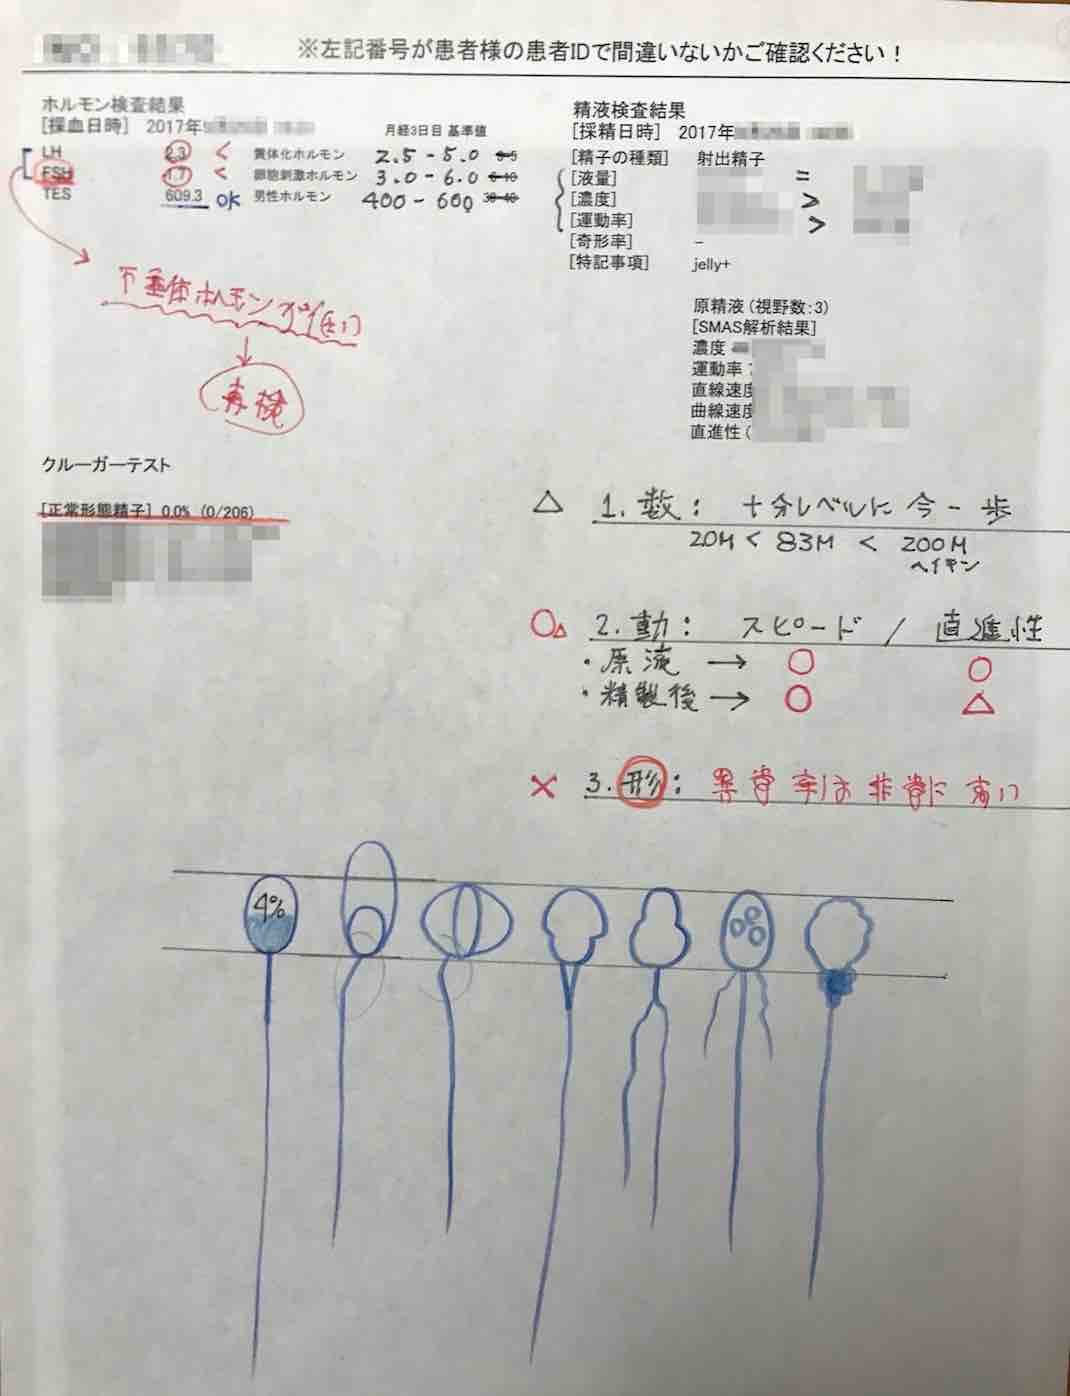 ※左記番号が患者様の患者IDで間違いないかご確認ください！
ホルモン検査結果
[採血日時] 2017年
月経3日目 基準値
LH 2.3 < 黄体化ホルモン 2.5 - 5.0
FSH 1.7 < 卵胞刺激ホルモン 3.0 - 6.0
TES 609.3 ok 男性ホルモン 400 - 600
下垂体ホルモン
再検
精液検査結果
[採精日時] 2017年
[精子の種類] 射出精子
[液量] =
[濃度] >
[運動率] >
[奇形率] -
[特記事項] jelly+
原精液 (視野数:3)
[SMAS解析結果]
濃度
運動率
直線速度
曲線速度
直進性 (
クルーガーテスト
[正常形態精子] 0.0% (0/206)
△ 1. 数: 十分レベルに今一歩
20M < 83M < 200M
ヘイキン
○△ 2. 動: スピード / 直進性
・原液 → ○ ○
・精製後 → ○ △
× 3. 形: 異常率は非常に高い
4%